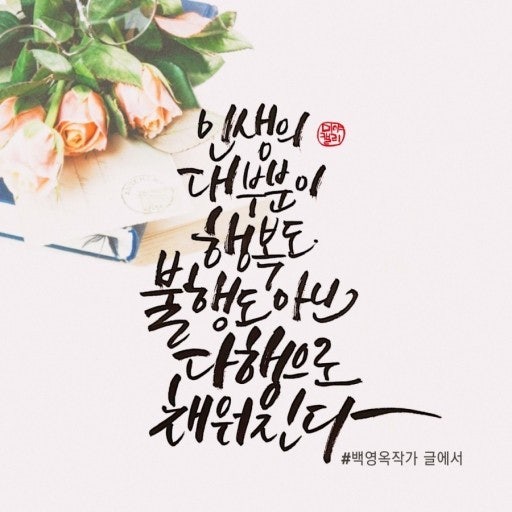 인생의
대부분이
행복도
불행도 아닌
다행으로
채워진다
#백영옥작가 글에서